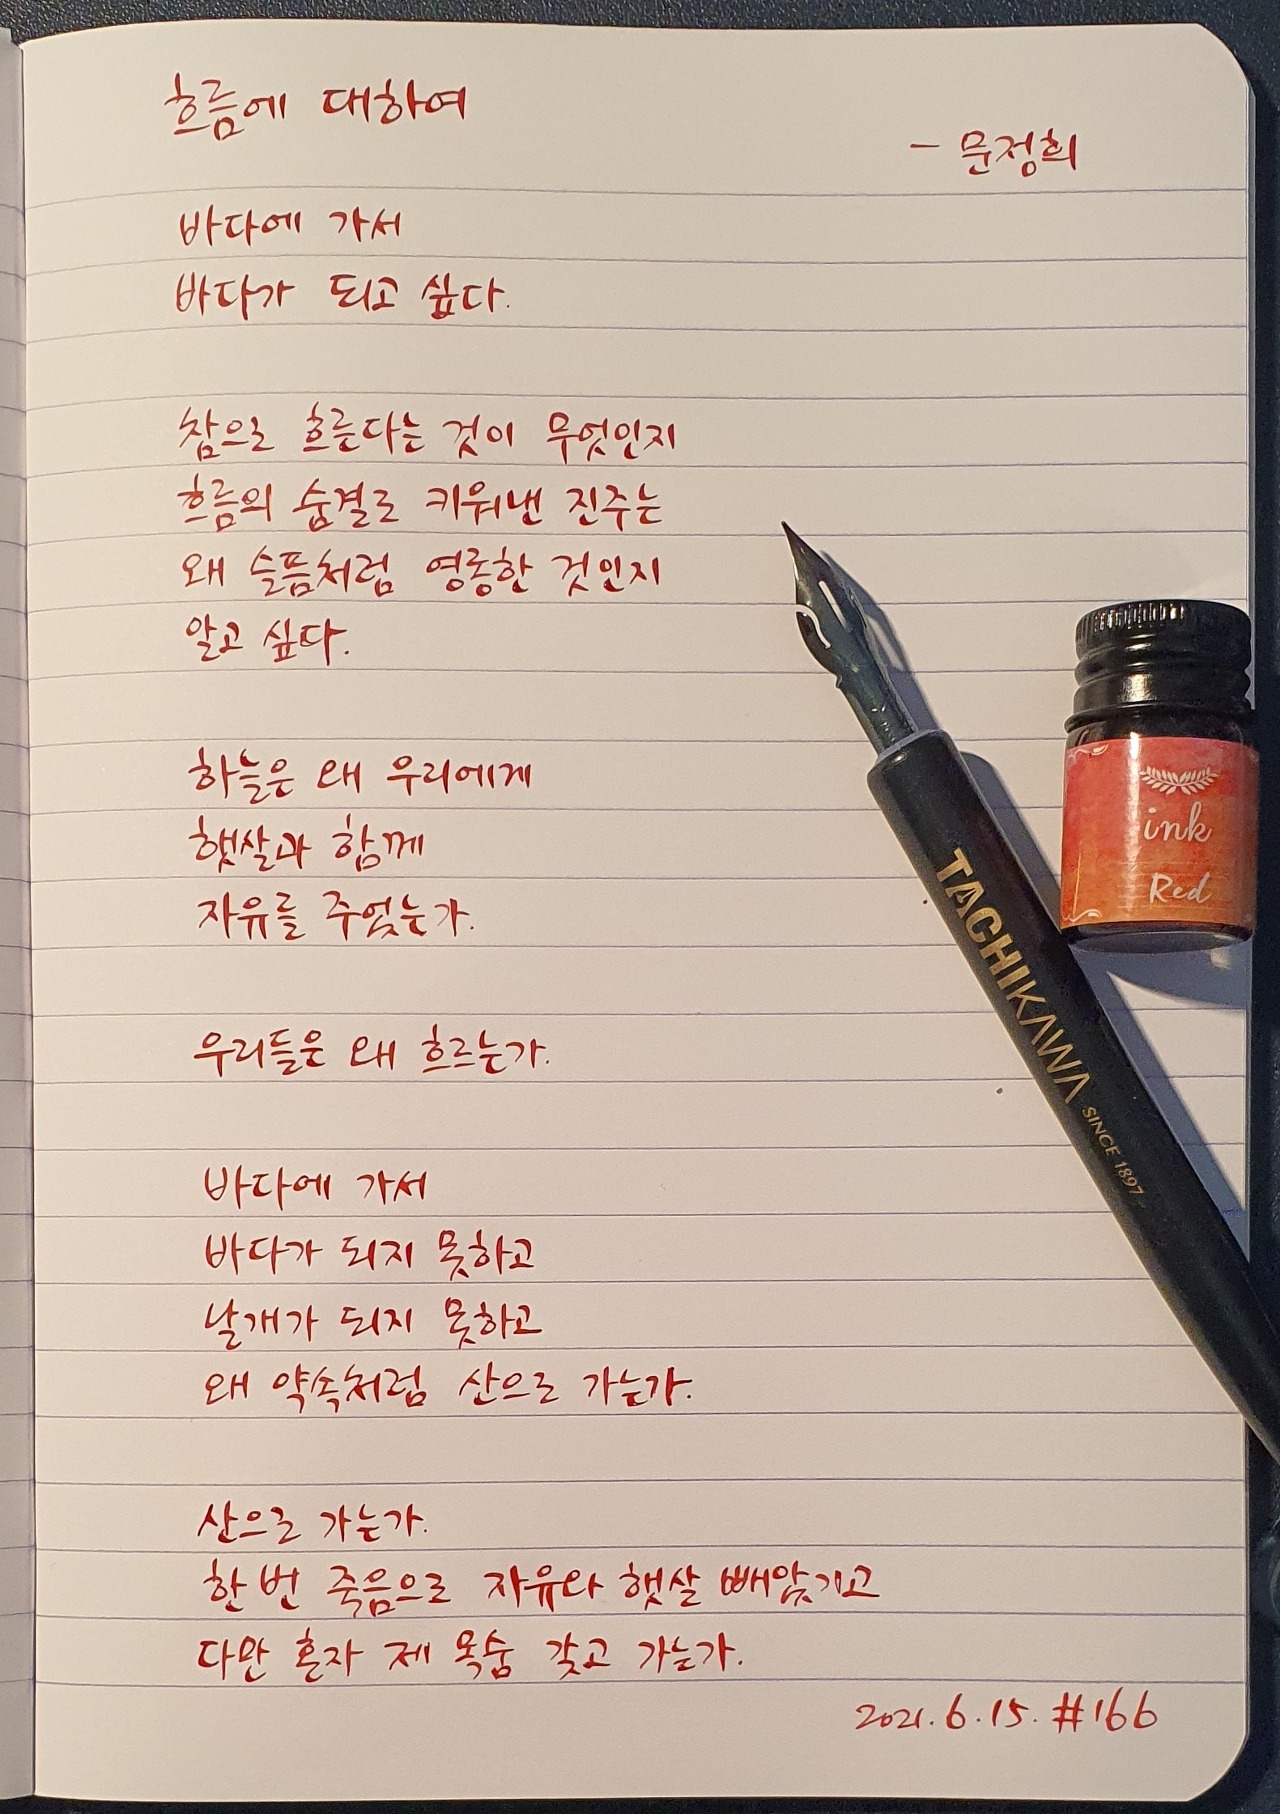 흐름에 대하여
- 문정희
바다에 가서
바다가 되고 싶다.
참으로 흐른다는 것이 무엇인지
흐름의 숨결로 키워낸 진주는
왜 슬픔처럼 영롱한 것인지
알고 싶다.
하늘은 왜 우리에게
햇살과 함께
자유를 주었는가.
우리들은 왜 흐르는가.
바다에 가서
바다가 되지 못하고
날개가 되지 못하고
왜 약속처럼 산으로 가는가.
산으로 가는가.
한 번 죽음으로 자유와 햇살 빼앗기고
다만 혼자 제 목숨 갖고 가는가.
2021.6.15. #166
TACHIKAWA SINCE 1897
ink
Red